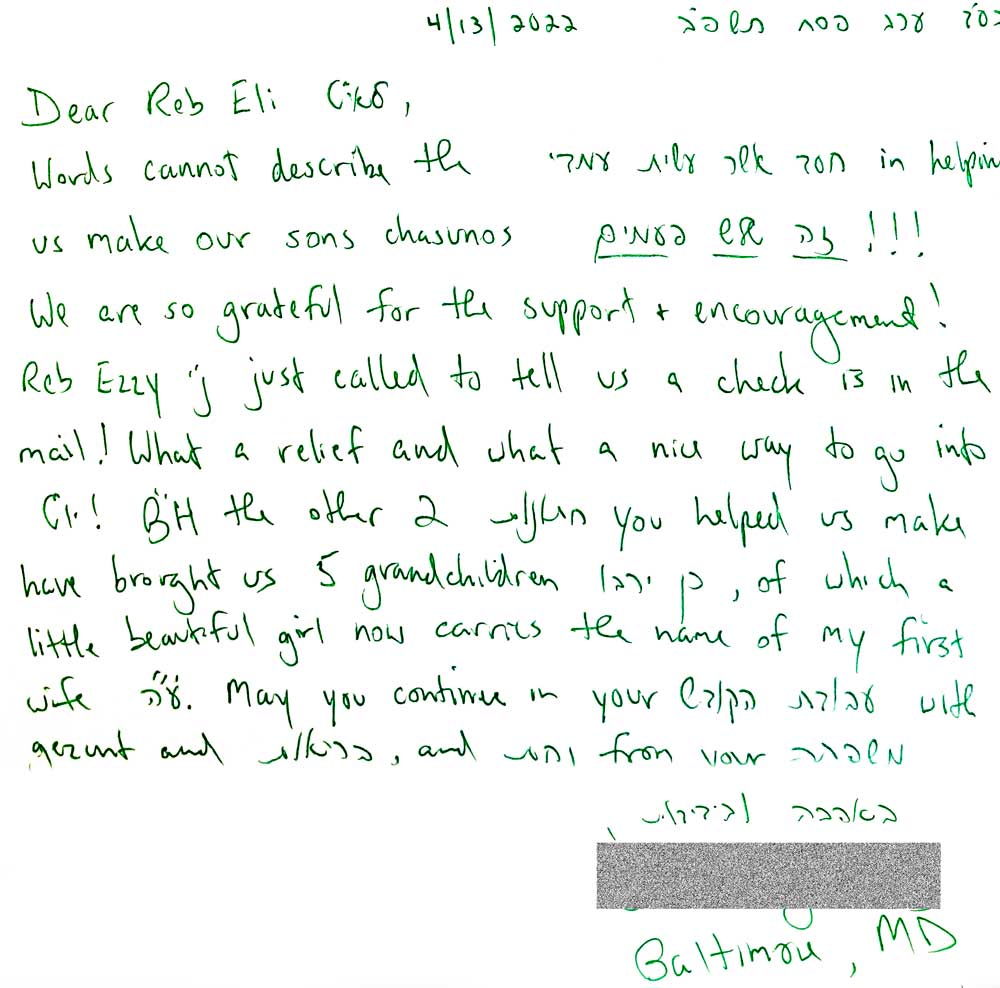 4/13/2022 בס"ד ערב פסח תשפ"ב
Dear Reb Eli שליט"א,
Words cannot describe the חסד אשר עשית עמדי in helpin
us make our sons chasunos זה שש פעמים!!!
We are so grateful for the support + encouragement!
Reb Ezzy נ"י just called to tell us a check is in the
mail! What a relief and what a nice way to go into
יו"ט! B"H the other 2 חתונות you helped us make
have brought us 5 grandchildren כן ירבו, of which a
little beautiful girl now carries the name of my first
wife ע"ה. May you continue in your עבודת הקודש with
gezunt and בריאות, and נחת from your משפחה
באהבה ובידידות,
Baltimore, MD